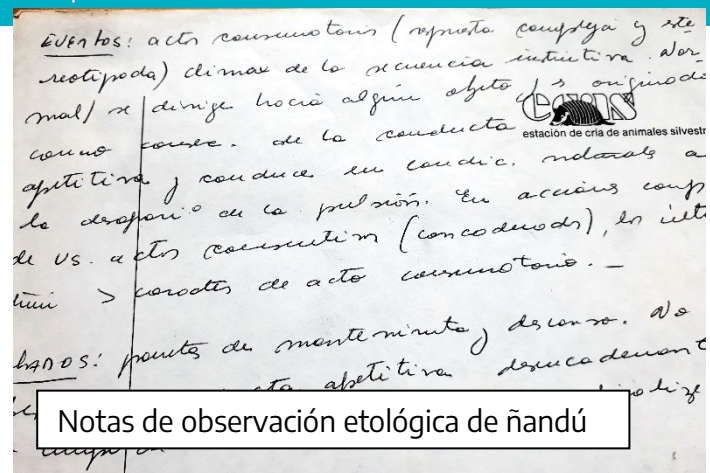 EVENTOS: acto consumatorio (respuesta compleja y este
reotipada) climax de la secuencia instintiva. Nor
mal/ se dirige hacia algún objeto, es originado
como consec. de la conducta
apetitiva y conduce en condic. naturales a
la desaparic en la pulsión. En acciones comp
de vs. actos consumativos (concadenados), los últi
> caracter de acto consumatorio. –
ecas
estación de cría de animales silvestr
TADOS: pautas de mantenimiento y descanso. No
apetitiva desencadenant
Notas de observación etológica de ñandú